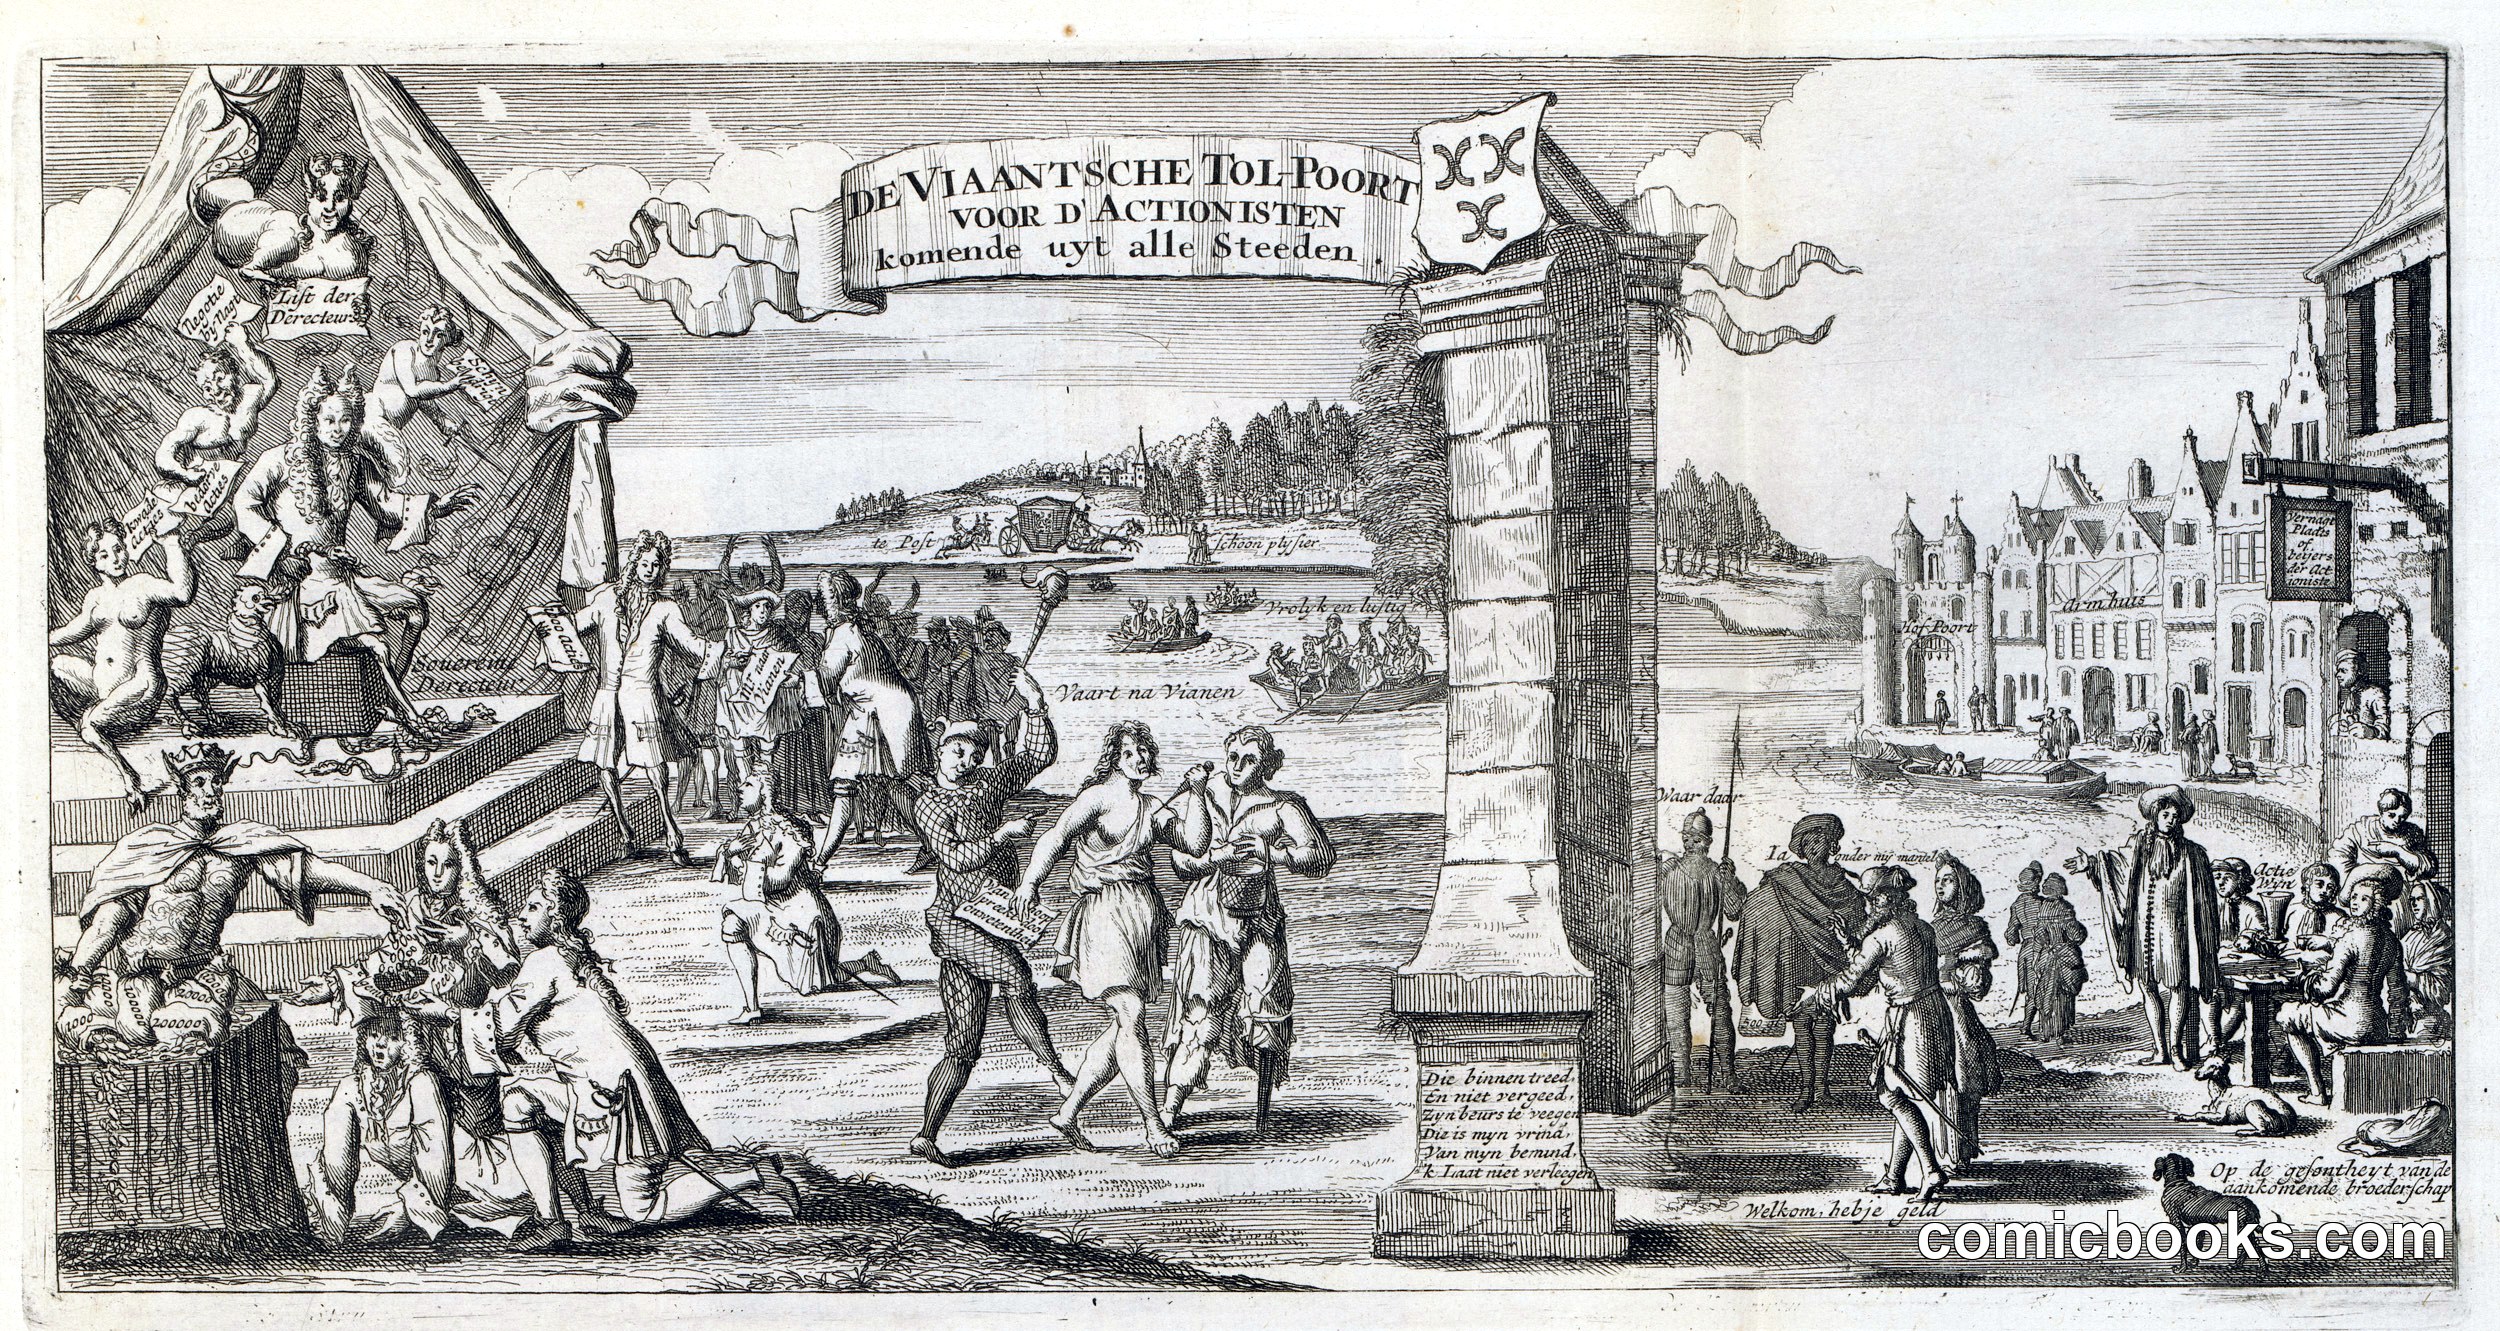 DE VIAANTSCHE TOL-POORT
VOOR D'ACTIONISTEN
komende uyt alle Steeden.
Negotie
by Nagt
List der
Derecteurs
Schyn
kwade
Acties
acties
Souereine
Derecteur
Acties
na
Vianen
te Post
schoon plysier
Vrolyk en lustig
Vaart na Vianen
Van
1000
20000
200000
Die binnen treed,
En niet vergeed,
Zyn beurs te veegen
Die is myn vrind,
Van myn bemind,
'k Laat niet verleegen
Hof-Poort
Arm huis
Vernagt
Plades
of
beijers
der Act
ioniste
Waar daar
Ia onder mij mantel
500
Actie
Wyn
Welkom, hebje geld
Op de gesontheyt van de
aankomende broederschap
comicbooks.com